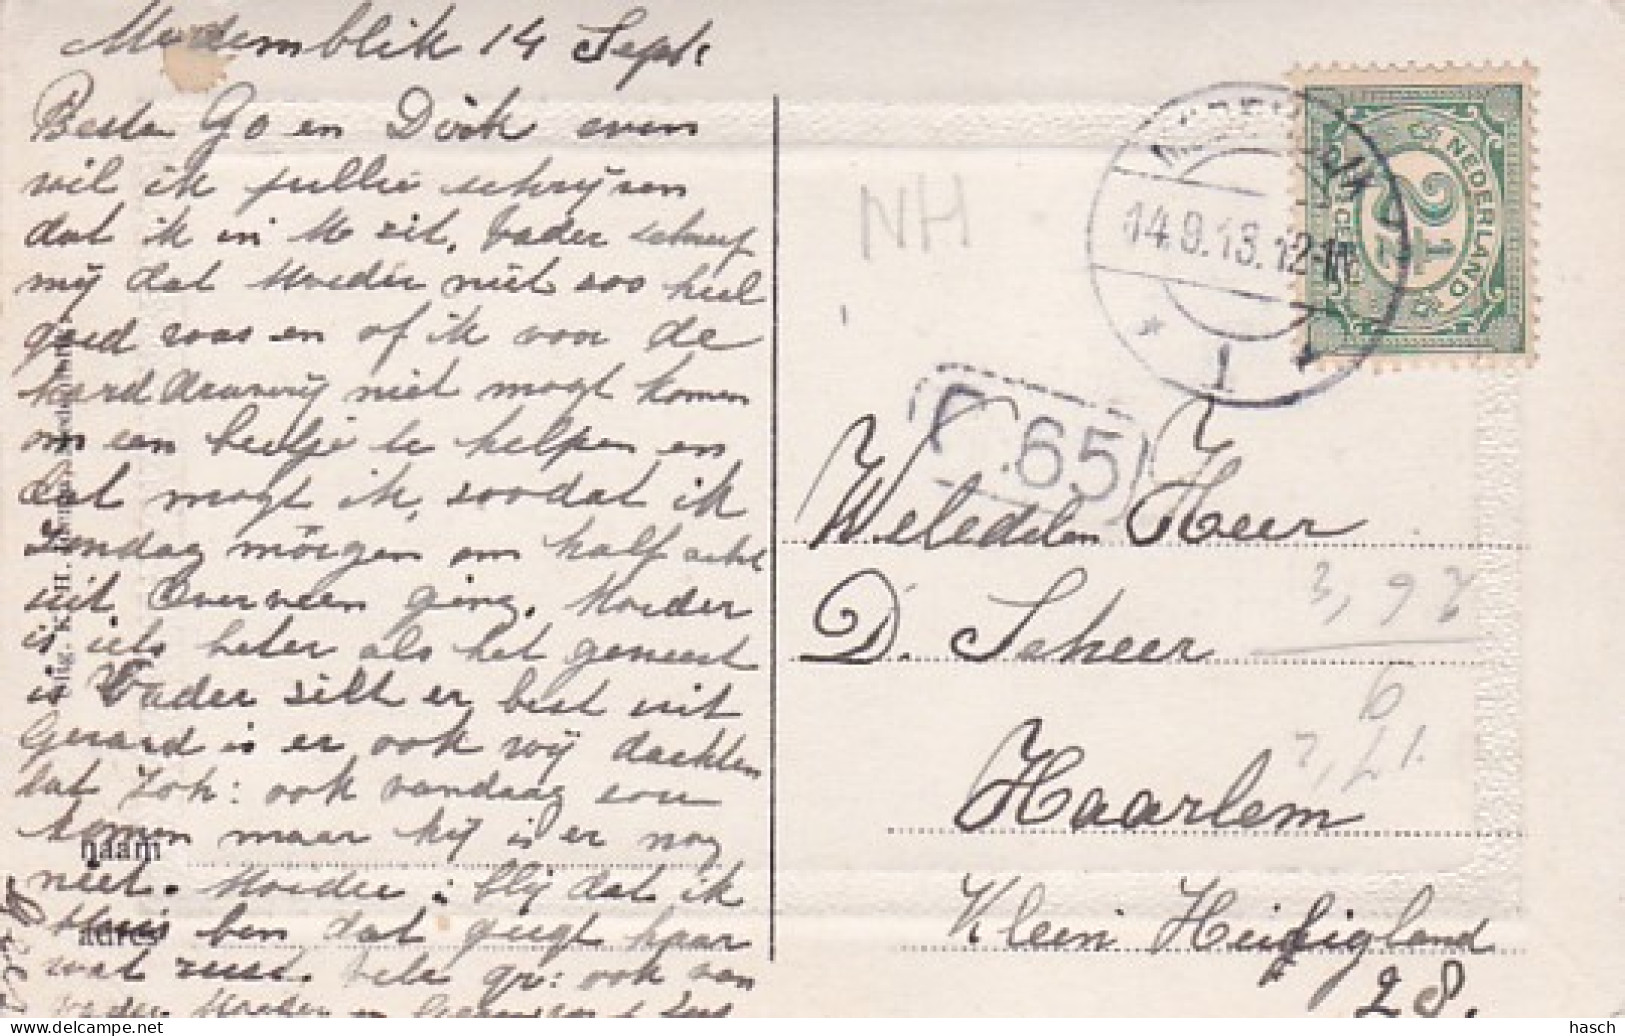 Medemblik 14 Sept.
Beste Go en Dirk even
wil ik jullie schrijven
dat ik in M zit. Vader schreef
mij dat Moeder niet zoo heel
goed was en of ik voor de
harddraverij niet mogt komen
om een beetje te helpen en
dat mogt ik, zoodat ik
Zondag morgen om half acht
uit Overveen ging. Moeder
is iets beter als het geweest
is Vader ziet er best uit
Gerard is er ook wij dachten
dat Joh: ook vandaag zou
komen maar hij is er nog
niet. Moeder: blij dat ik
thuis ben dat giegt haar
wat rust. Vele gr: ook van
Vader Moeder en
naam
adres
Uitg. K. H.
NEDERLAND
2½
CENT
14.9.13.12-
1
NH
65
Weledelen Heer
D. Scheer
Haarlem
Klein Heiligland
28.
3,97
6
hasch